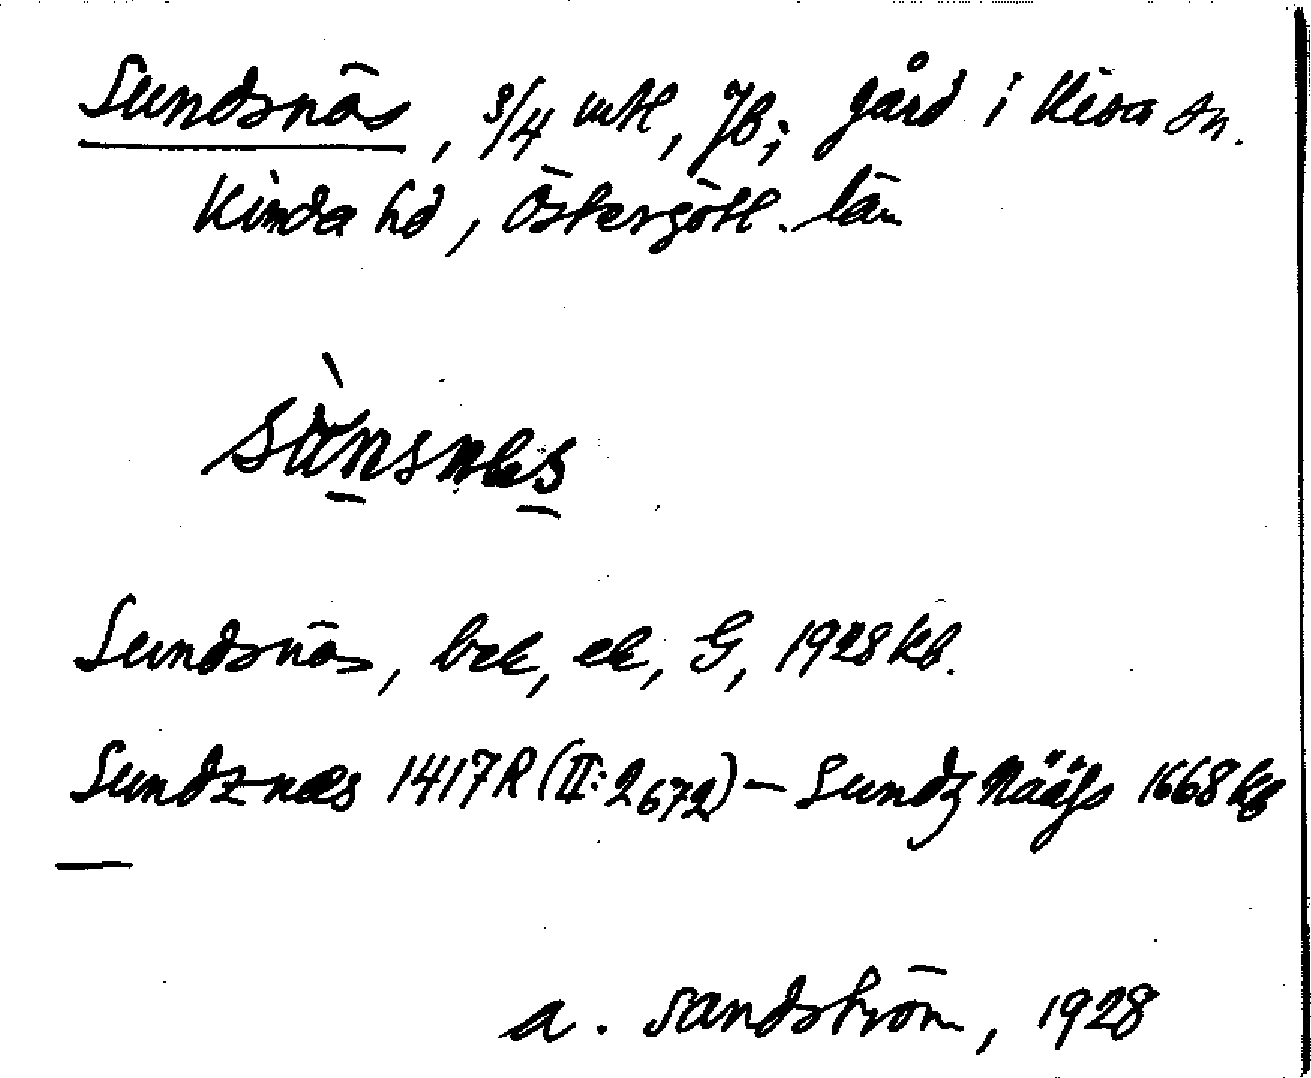 Sundsnäs, 3/4 mtl, Jb; gård i Kisa sn.
Kinda hd, Östergötl. län
Sundsnäs, bek, ek, G, 1928 kb.
Sundznæs 1417 R (II: 2672) – Sundz Nääs 1668 kb
A. Sandström, 1928